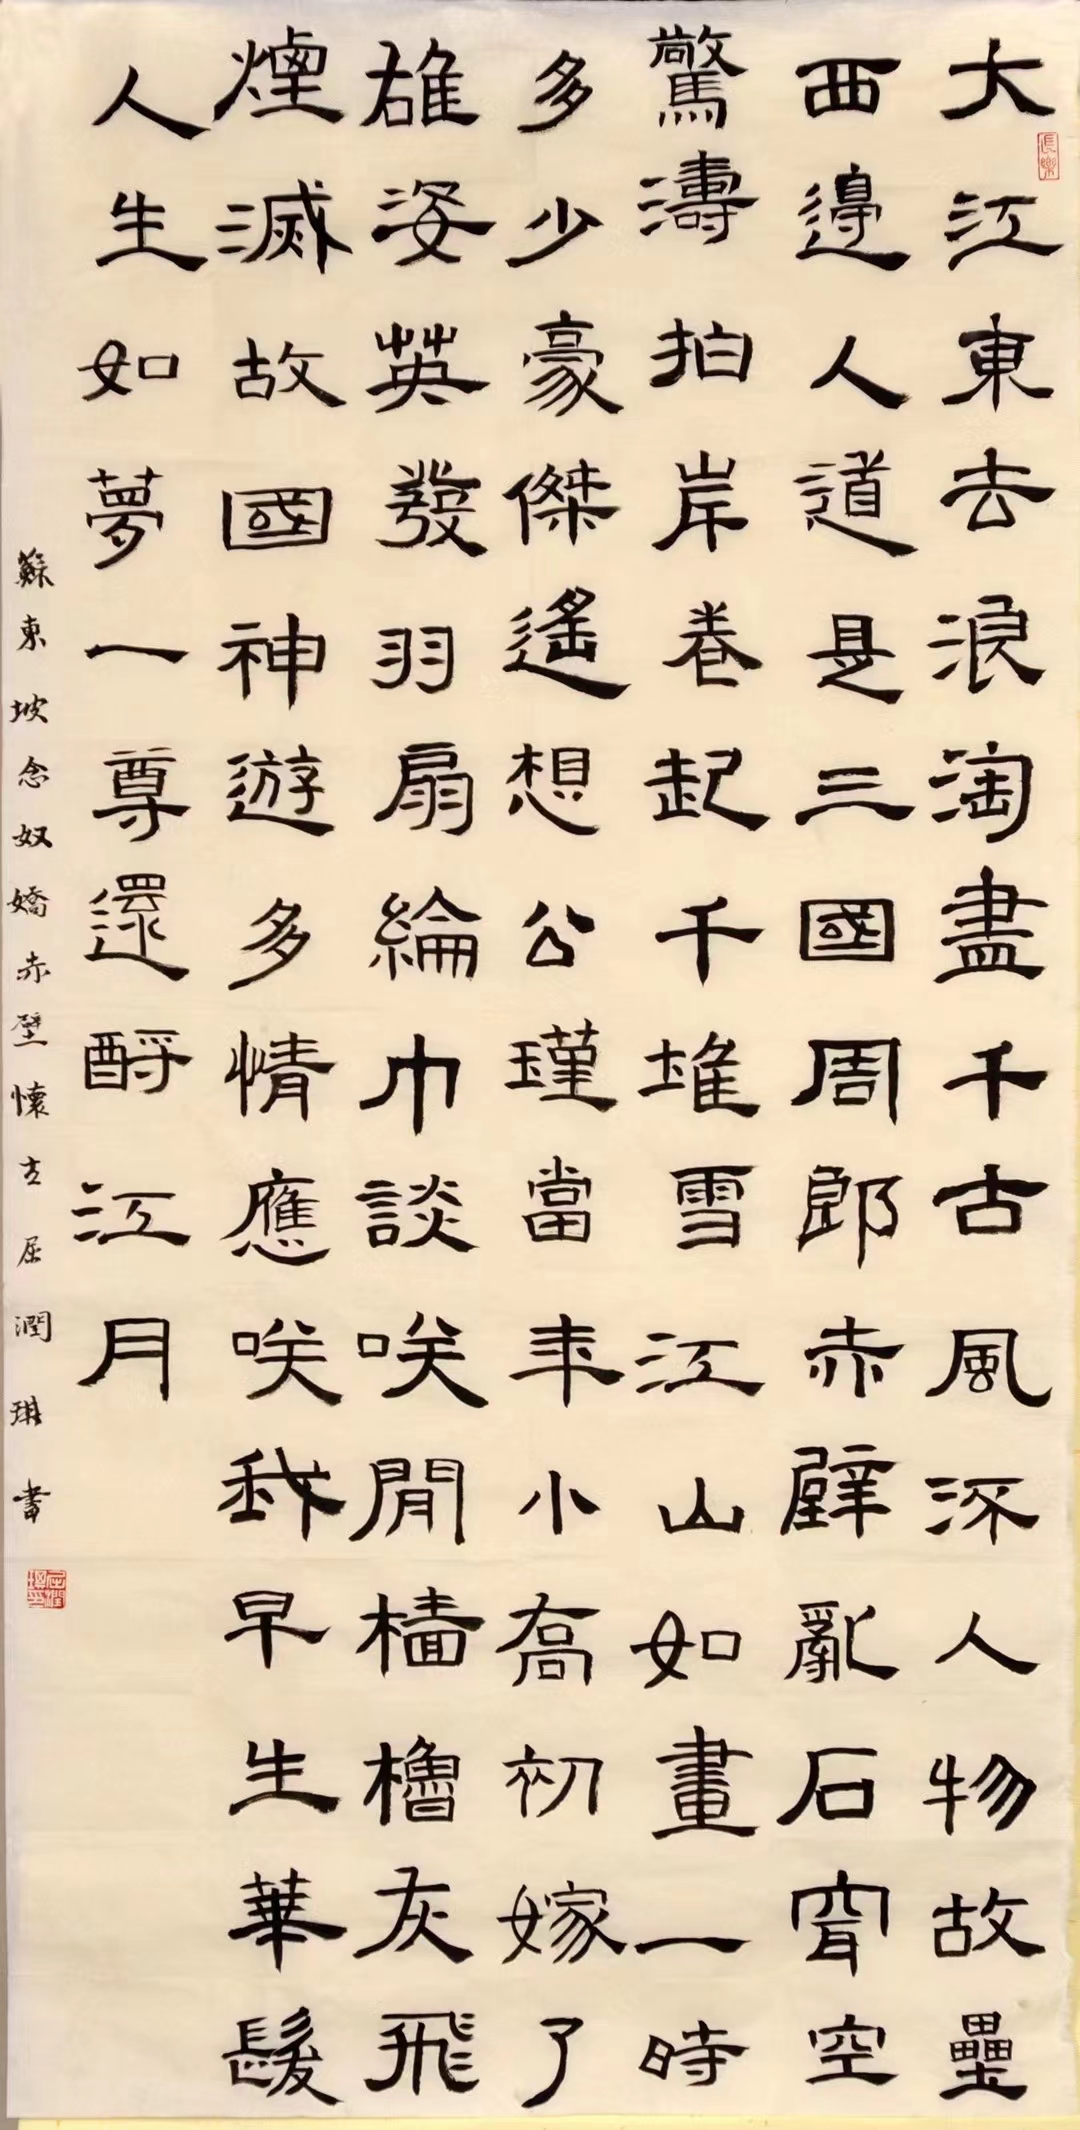 大江東去浪淘盡千古風流人物故壘
西邊人道是三國周郎赤壁亂石穿空
驚濤拍岸卷起千堆雪江山如畫一時
多少豪傑遙想公瑾當年小喬初嫁了
雄姿英發羽扇綸巾談咲閒檣櫓灰飛
煙滅故國神遊多情應咲我早生華髮
人生如夢一尊還酹江月
蘇東坡念奴嬌赤壁懷古屈潤琪書
長樂